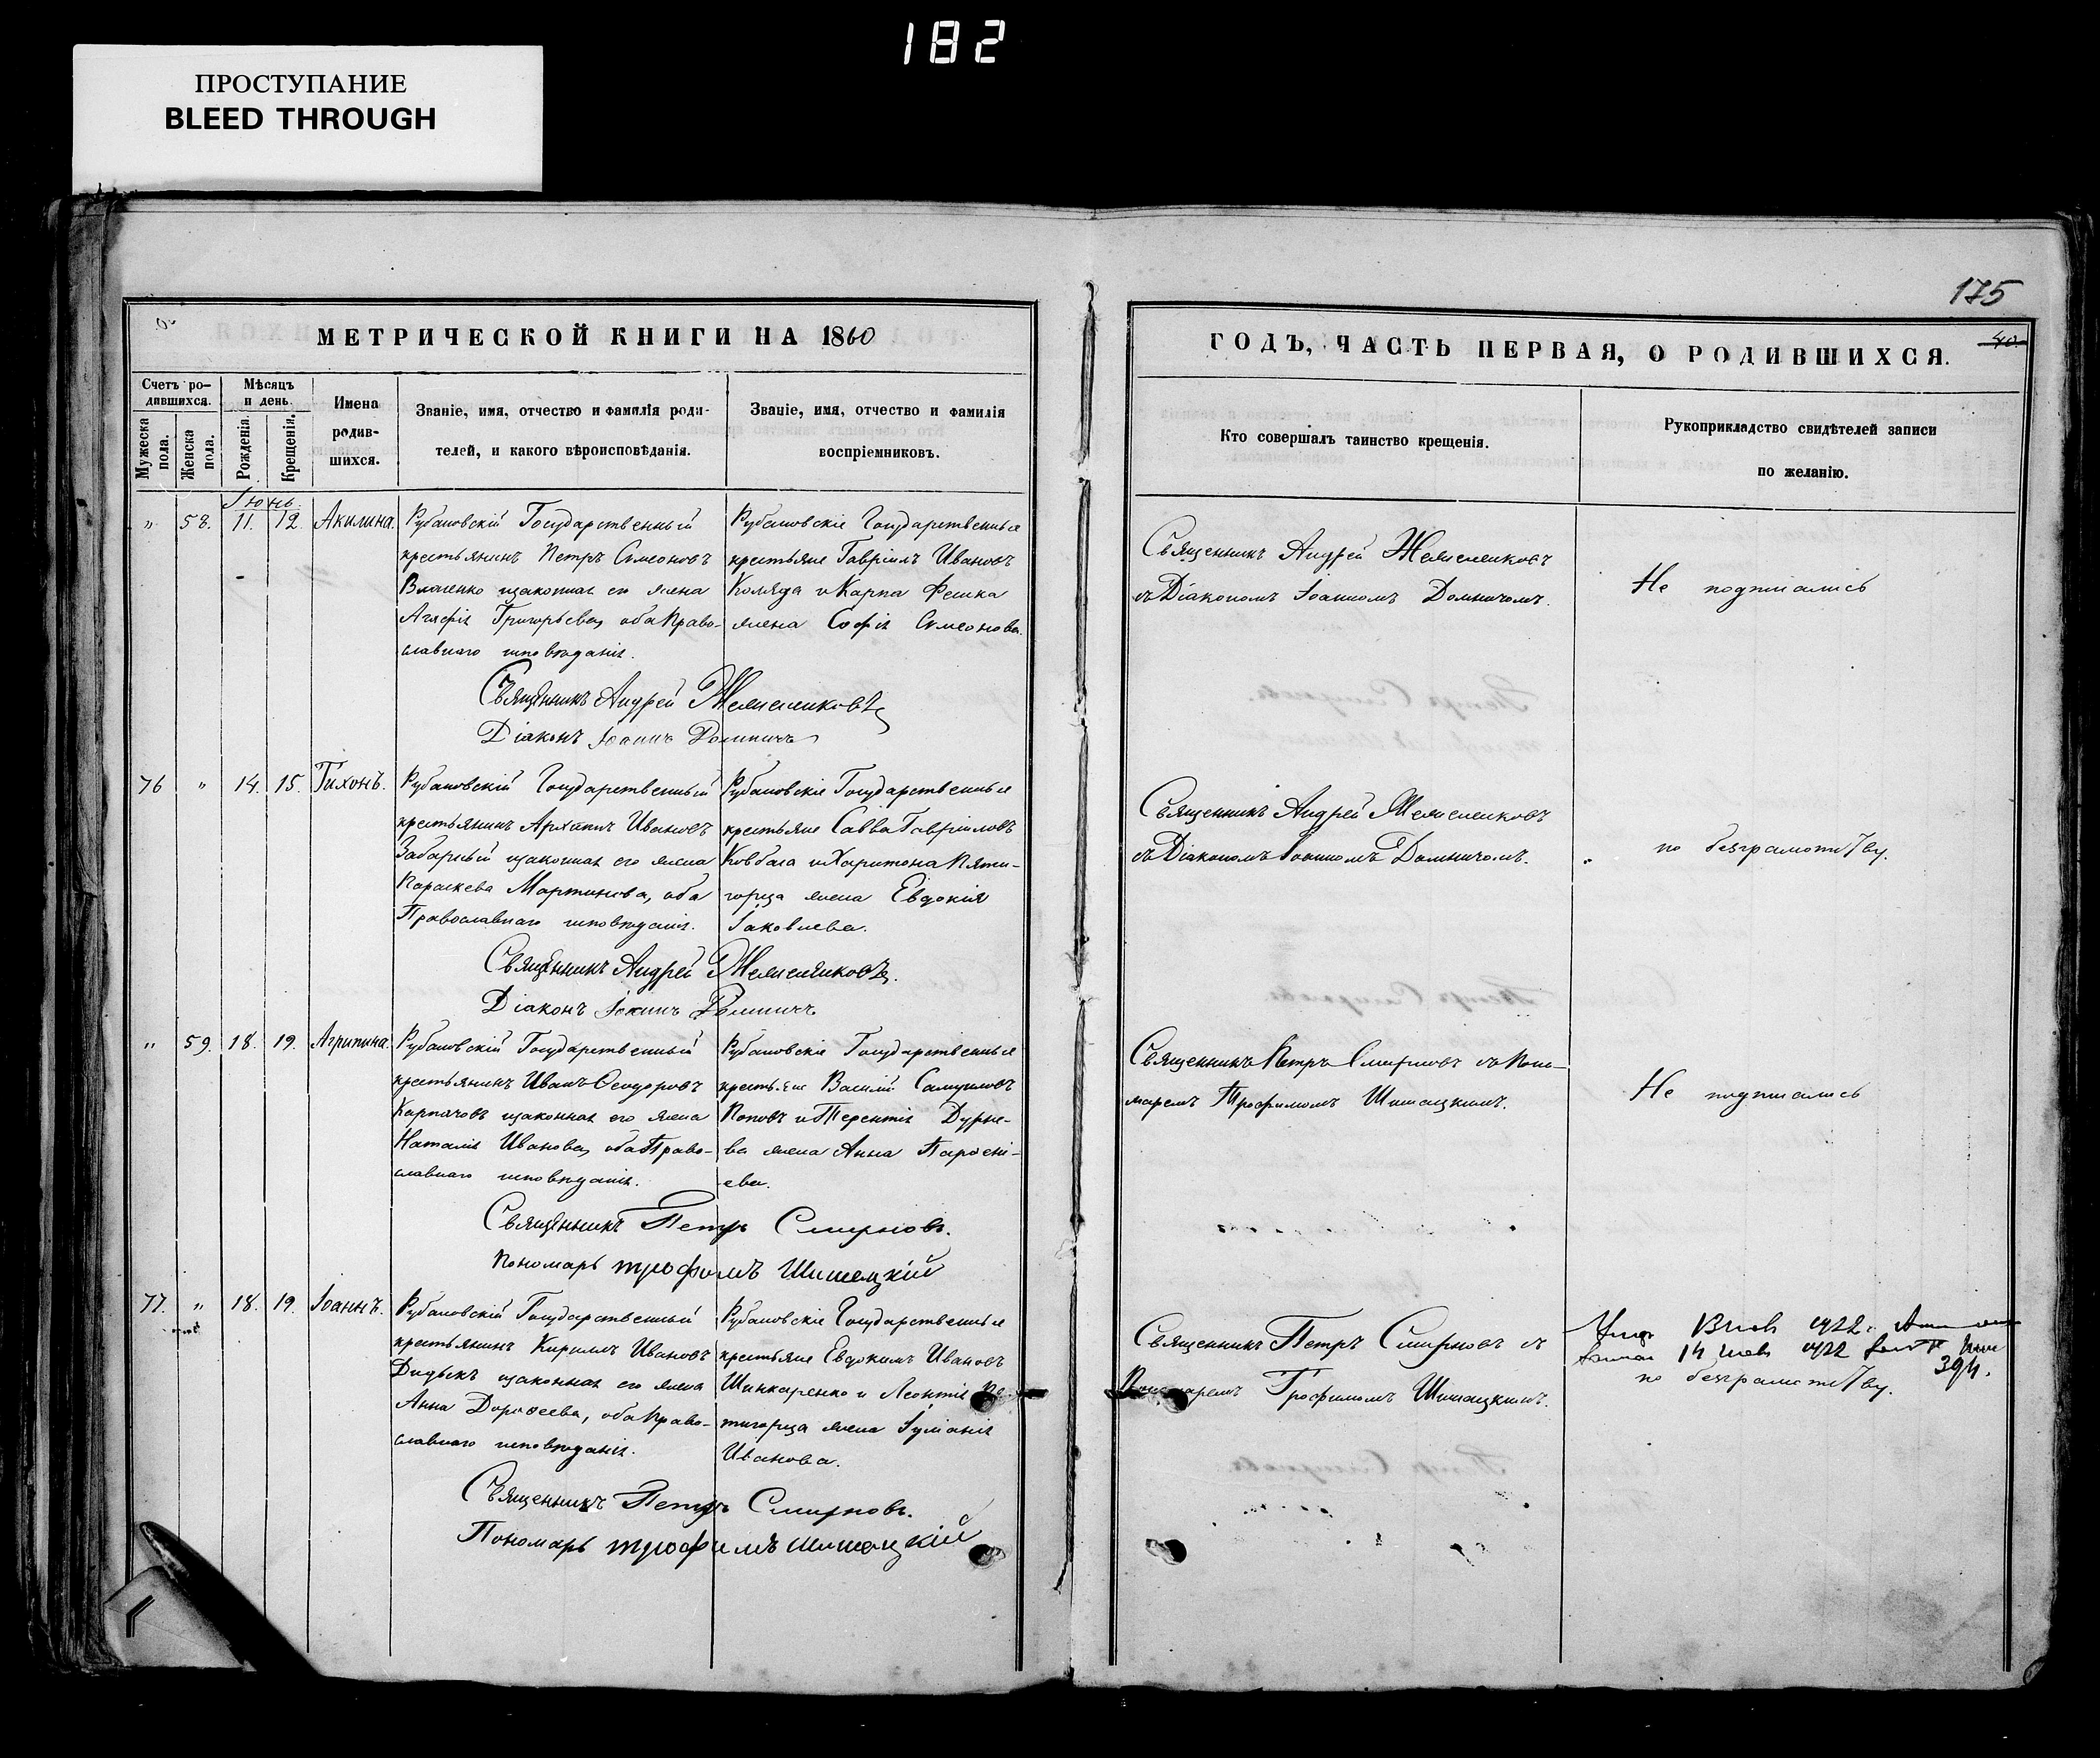 182
ПРОСТУПАНИЕ
BLEED THROUGH
175
МЕТРИЧЕСКОЙ КНИГИ НА 1860
Счетъ ро-
дившихся.
Мужеска пола.
Женска пола.
Мѣсяцъ
и день.
Рожденія.
Крещенія.
Имена
родив-
шихся.
Званіе, имя, отчество и фамилія роди-
телей, и какого вѣроисповѣданія.
Званіе, имя, отчество и фамилія
воспріемниковъ.
Іюнь.
„ 58. 11. 12. Акилина.
Рубановскій Государственный
крестьянинъ Петръ Симеоновъ
законная его жена
Агафія Григорьева, оба Право-
славнаго исповѣданія.
Рубановскіе Государственные
крестьяне Гавріилъ Ивановъ
Коляда и Карпа Фешка
жена Софія Симеонова.
Священникъ Андрей
Діаконъ Іоаннъ Домничъ
76 „ 14. 15. Тихонъ.
Рубановскій Государственный
крестьянинъ Архипъ Ивановъ
законная его жена
Параскева Мартинова, оба
Православнаго исповѣданія.
Рубановскіе Государственные
крестьяне Савва Гавріиловъ
Ковбаса и Харитона Пяти-
горца жена Евдокія
Іаковлева.
Священникъ Андрей
Діаконъ Іоаннъ Домничъ
„ 59. 18. 19. Агрипина.
Рубановскій Государственный
крестьянинъ Иванъ Ѳеодоровъ
Карпачовъ законная его жена
Наталія Иванова, оба Право-
славнаго исповѣданія.
Рубановскіе Государственные
крестьяне Василій Самуиловъ
Поповъ и Терентія Дурне-
ва жена Анна Парѳені-
ева.
Священникъ Петръ Смирновъ.
Пономарь Трофимъ Шишацкій
77. „ 18. 19. Іоаннъ.
Рубановскій Государственный
крестьянинъ Кириллъ Ивановъ
Дидыкъ законная его жена
Анна Дороѳеева, оба Право-
славнаго исповѣданія.
Рубановскіе Государственные
крестьяне Евдокимъ Ивановъ
Шинкаренко и Леонтія Пя-
тигорца жена Іуліанія
Иванова.
Священникъ Петръ Смирновъ.
Пономарь Трофимъ Шишацкій
ГОДЪ, ЧАСТЬ ПЕРВАЯ, О РОДИВШИХСЯ.
40.
Кто совершалъ таинство крещенія.
Рукоприкладство свидѣтелей записи
по желанію.
Священникъ Андрей
съ Діакономъ Іоанномъ Домничомъ.
Не подписались
Священникъ Андрей
съ Діакономъ Іоанномъ Домничомъ.
по безграмотству.
Священникъ Петръ Смирновъ съ Поно-
маремъ Трофимомъ Шишацкимъ.
Не подписались
Священникъ Петръ Смирновъ съ
Пономаремъ Трофимомъ Шишацкимъ.
1922
14 1922
394.
по безграмотству.